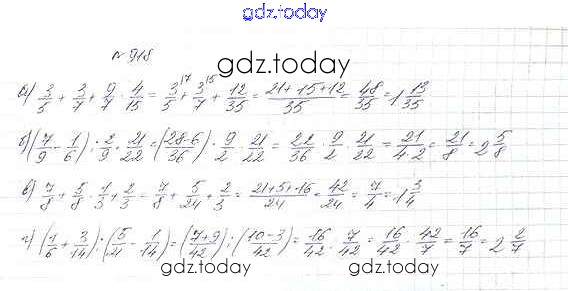 gdz.today
№ 918
gdz.today
а) 3/5 + 3/7 + 9/7 · 4/15 = 3/5 + 3/7 + 12/35 = (21+15+12)/35 = 48/35 = 1 13/35
б) (7/9 - 1/6) : 2/9 · 21/22 = (28-6)/36 · 9/2 · 21/22 = 22/36 · 9/2 · 21/22 = 21/4·2 = 21/8 = 2 5/8
в) 7/8 + 5/8 · 1/3 + 2/3 = 7/8 + 5/24 + 2/3 = (21+5+16)/24 = 42/24 = 7/4 = 1 3/4
г) (1/6 + 3/14) : (5/21 - 1/14) = (7+9)/42 : (10-3)/42 = 16/42 : 7/42 = 16/42 · 42/7 = 16/7 = 2 2/7
gdz.today gdz.today